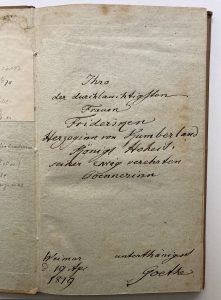 Ihro
der durchlauchtigsten
Frauen
Fridericken
Herzoginn von Kumberland
Königl. Hoheit.
seiner ewig verehrten
Goennerinn
Weimar unterthänigst
d 19. Apr Goethe
1819